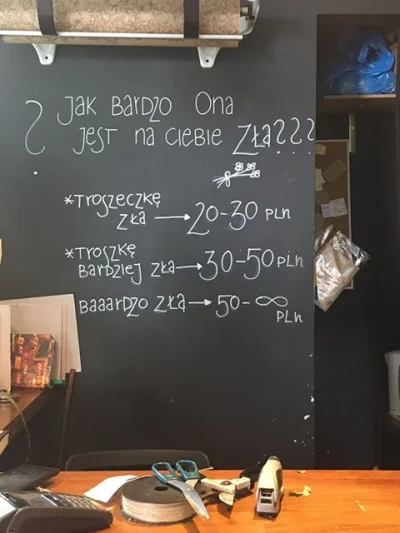 ? Jak Bardzo Ona
jest na Ciebie Zła???
*Troszeczkę
zła → 20-30 PLN
*Troszkę
Bardziej zła → 30-50 PLN
Baaardzo zła → 50-∞
PLN